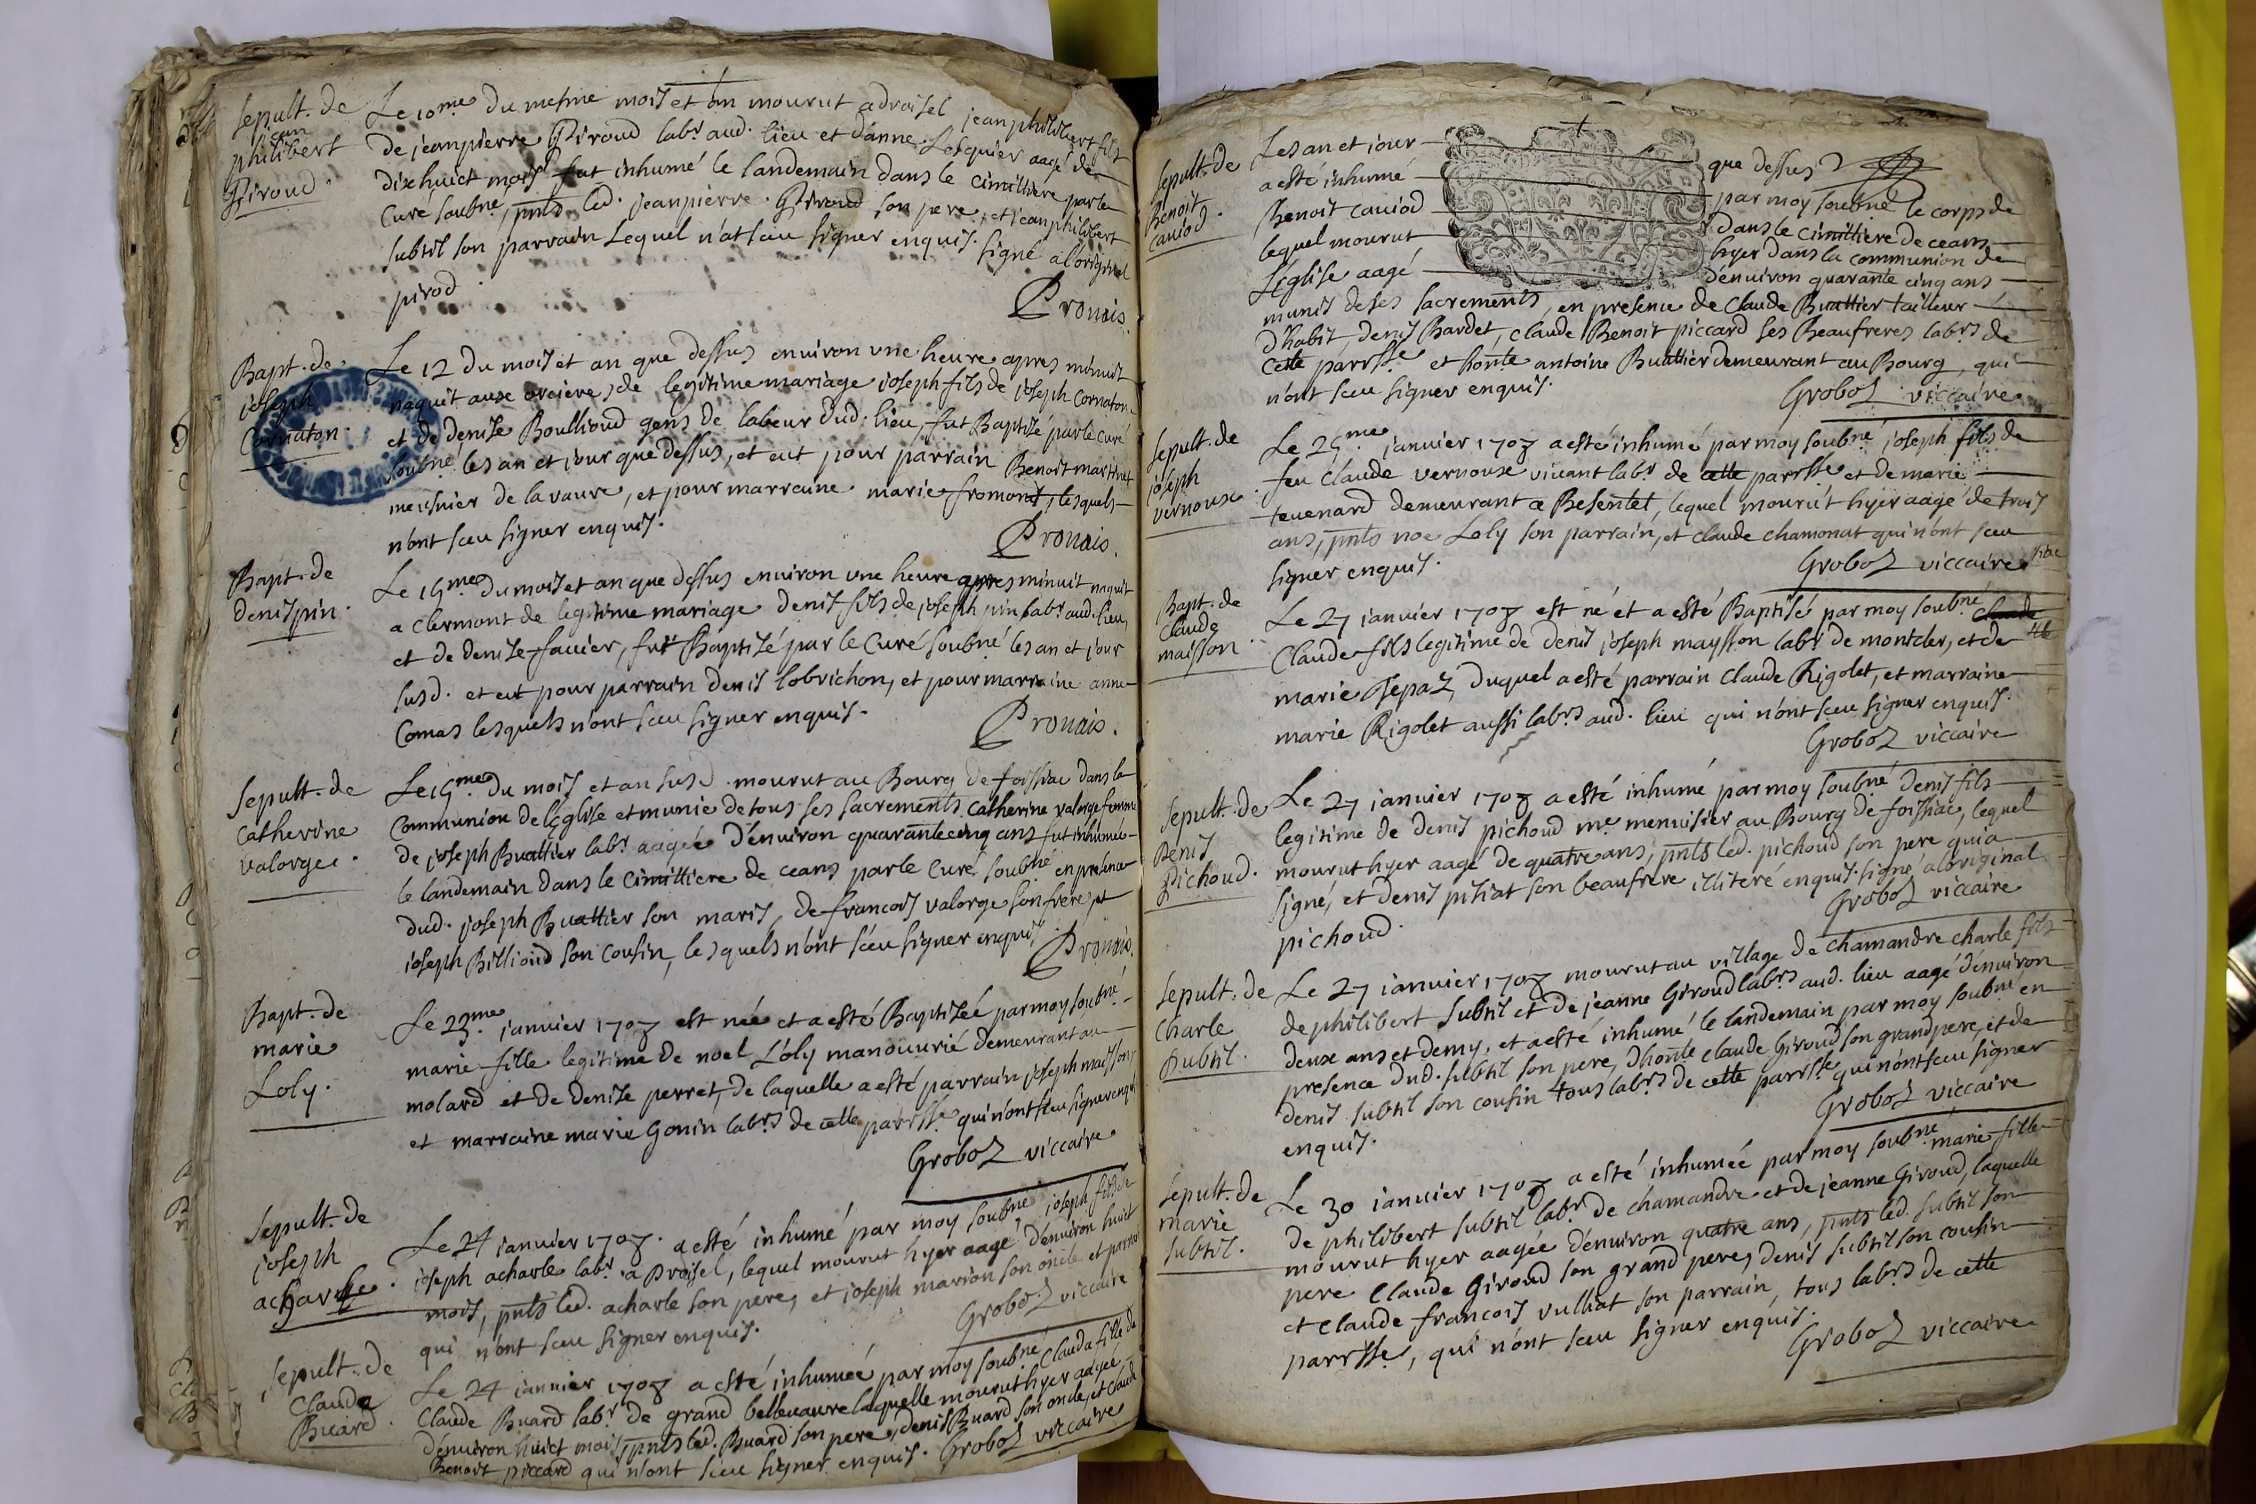 Sepult. de
jean
philibert
Giroud.
Le 10me du mesme mois et an mourut a droisel jean philibert fils
de jeanpierre Giroud labr aud. lieu et d'anne Lesquier aagé de
dixhuict mois fut inhumé le landemain dans le cimittiere par le
curé soubné, pnts led. jeanpierre Giroud son pere, et jean philibert
subtil son parrain Lequel n'at sceu signer enquis. signé aloriginal
pirod
Pronais.
Bapt. de
joseph
Cornaton.
Le 12 du mois et an que dessus environ une heure apres minuit
naquit aux orcieres, de legitime mariage joseph fils de joseph Cornaton
et de denise Boullioud gens de labeur dud. lieu, fut Baptizé par le curé
soubné les an et jour que dessus, et eut pour parrain Benoit martinet
meusnier de la vaure, et pour marraine marie fromont, lesquels
n'ont sceu signer enquis.
Pronais.
Bapt. de
denis pin.
Le 15me du mois et an que dessus environ une heure apres minuit naquit
a clermont de legitime mariage denis fils de joseph pin labr aud. lieu,
et de denise favier, fut Baptizé par le Curé soubné les an et jour
susd. et eut pour parrain denis lobrichon, et pour marraine anne
Comas lesquels n'ont sceu signer enquis.
Pronais.
Sepult. de
catherine
valorge.
Le 15me du mois et an susd. mourut au Bourg de foissiac dans la
communion de l'Eglise et munie de tous ses sacrements catherine valorge femme
de joseph Buattier labr aagée d'environ quarante cinq ans fut inhumée
le landemain dans le cimittiere de ceans par le curé soubné en presence
dud. joseph Buattier son maris, de francois valorge son frere, et
joseph Billioud son cousin, lesquels n'ont sceu signer enquis.
Pronais.
Bapt. de
marie
Loly.
Le 23me janvier 1708 est née et a esté Baptisée par moy soubné
marie fille legitime de noel Loly manouvrié demeurant au
molard et de denise perret, de laquelle a esté parrain joseph maisson,
et marraine marie Gonin labrs de cette parrsse qui n'ont sceu signer enquis
Groboz viccaire
Sepult. de
joseph
acharle.
Le 24 janvier 1708. a esté inhumé par moy soubné joseph fils de
joseph acharle labr a Droisel, lequel mourut hyer aagé d'environ huict
mois, pnts led. acharle son pere, et joseph marion son oncle et parrain
qui n'ont sceu signer enquis.
Groboz viccaire
Sepult. de
Clauda
Buard.
Le 24 janvier 1708 a esté inhumée par moy soubné Clauda fille de
Claude Buard labr de grand bellevavre laquelle mourut hyer aagée
d'environ huict mois, pnts led. Buard son pere, denis Buard son oncle, et claude
Benoit piccard qui n'ont sceu signer enquis. Groboz viccaire
Sepult. de
Benoit
caniod.
Les an et jour que dessus
a esté inhumé par moy soubné le corps de
Benoit caniod dans le cimittiere de ceans
lequel mourut hyer dans la communion de
L'église aagé d'environ quarante cinq ans
munis de ses sacrements, en presence de Claude Buattier tailleur
d'habit, denis Bardet, claude Benoit piccard ses Beaufreres labrs de
cette parrsse et honte antoine Buattier demeurant au Bourg, qui
n'ont sceu signer enquis.
Groboz viccaire
Sepult. de
joseph
vernoux.
Le 25me janvier 1708 a esté inhumé par moy soubné joseph fils de
feu claude vernoux vivant labr de cette parrsse et de marie
tevenard demeurant a Besentet, lequel mourut hyer aagé de trois
ans, pnts noe Loly son parrain, et claude chamonat qui n'ont sceu
signer enquis.
Groboz viccaire
Bapt. de
Claude
maisson.
Le 27 janvier 1708 est né et a esté Baptisé par moy soubné claude
Claude fils legitime de denis joseph maysson labr de montcler, et de
marie Repaz, duquel a esté parrain claude Rigolet, et marraine
marie Rigolet aussi labrs aud. lieu qui n'ont sceu signer enquis.
Groboz viccaire
Sepult. de
Denis
Pichoud.
Le 27 janvier 1708 a esté inhumé par moy soubné denis fils
legitime de denis pichoud me menuisier au Bourg de foissiac, lequel
mourut hyer aagé de quatre ans, pnts led. pichoud son pere qui a
signé, et denis pitiat son beaufrere illiteré enquis. signé aloriginal
pichoud.
Groboz viccaire
Sepult. de
Charle
Subtil.
Le 27 janvier 1708 mourut au village de chamandre charle fils
de philibert subtil et de jeanne Giroud labrs aud. lieu aagé d'environ
deux ans et demy, et a esté inhumé le landemain par moy soubné en
presence dud. subtil son pere, d'honte claude Giroud son grandpere, et de
denis subtil son cousin tous labrs de cette parrsse qui n'ont sceu signer
enquis.
Groboz viccaire
Sepult. de
marie
Subtil.
Le 30 janvier 1708 a esté inhumée par moy soubné marie fille
de philibert subtil labr de chamandre et de jeanne Giroud, laquelle
mourut hyer aagée d'environ quatre ans, pnts led. subtil son
pere claude Giroud son grand pere, denis subtil son cousin
et claude francois vulliat son parrain, tous labrs de cette
parrsse, qui n'ont sceu signer enquis.
Groboz viccaire